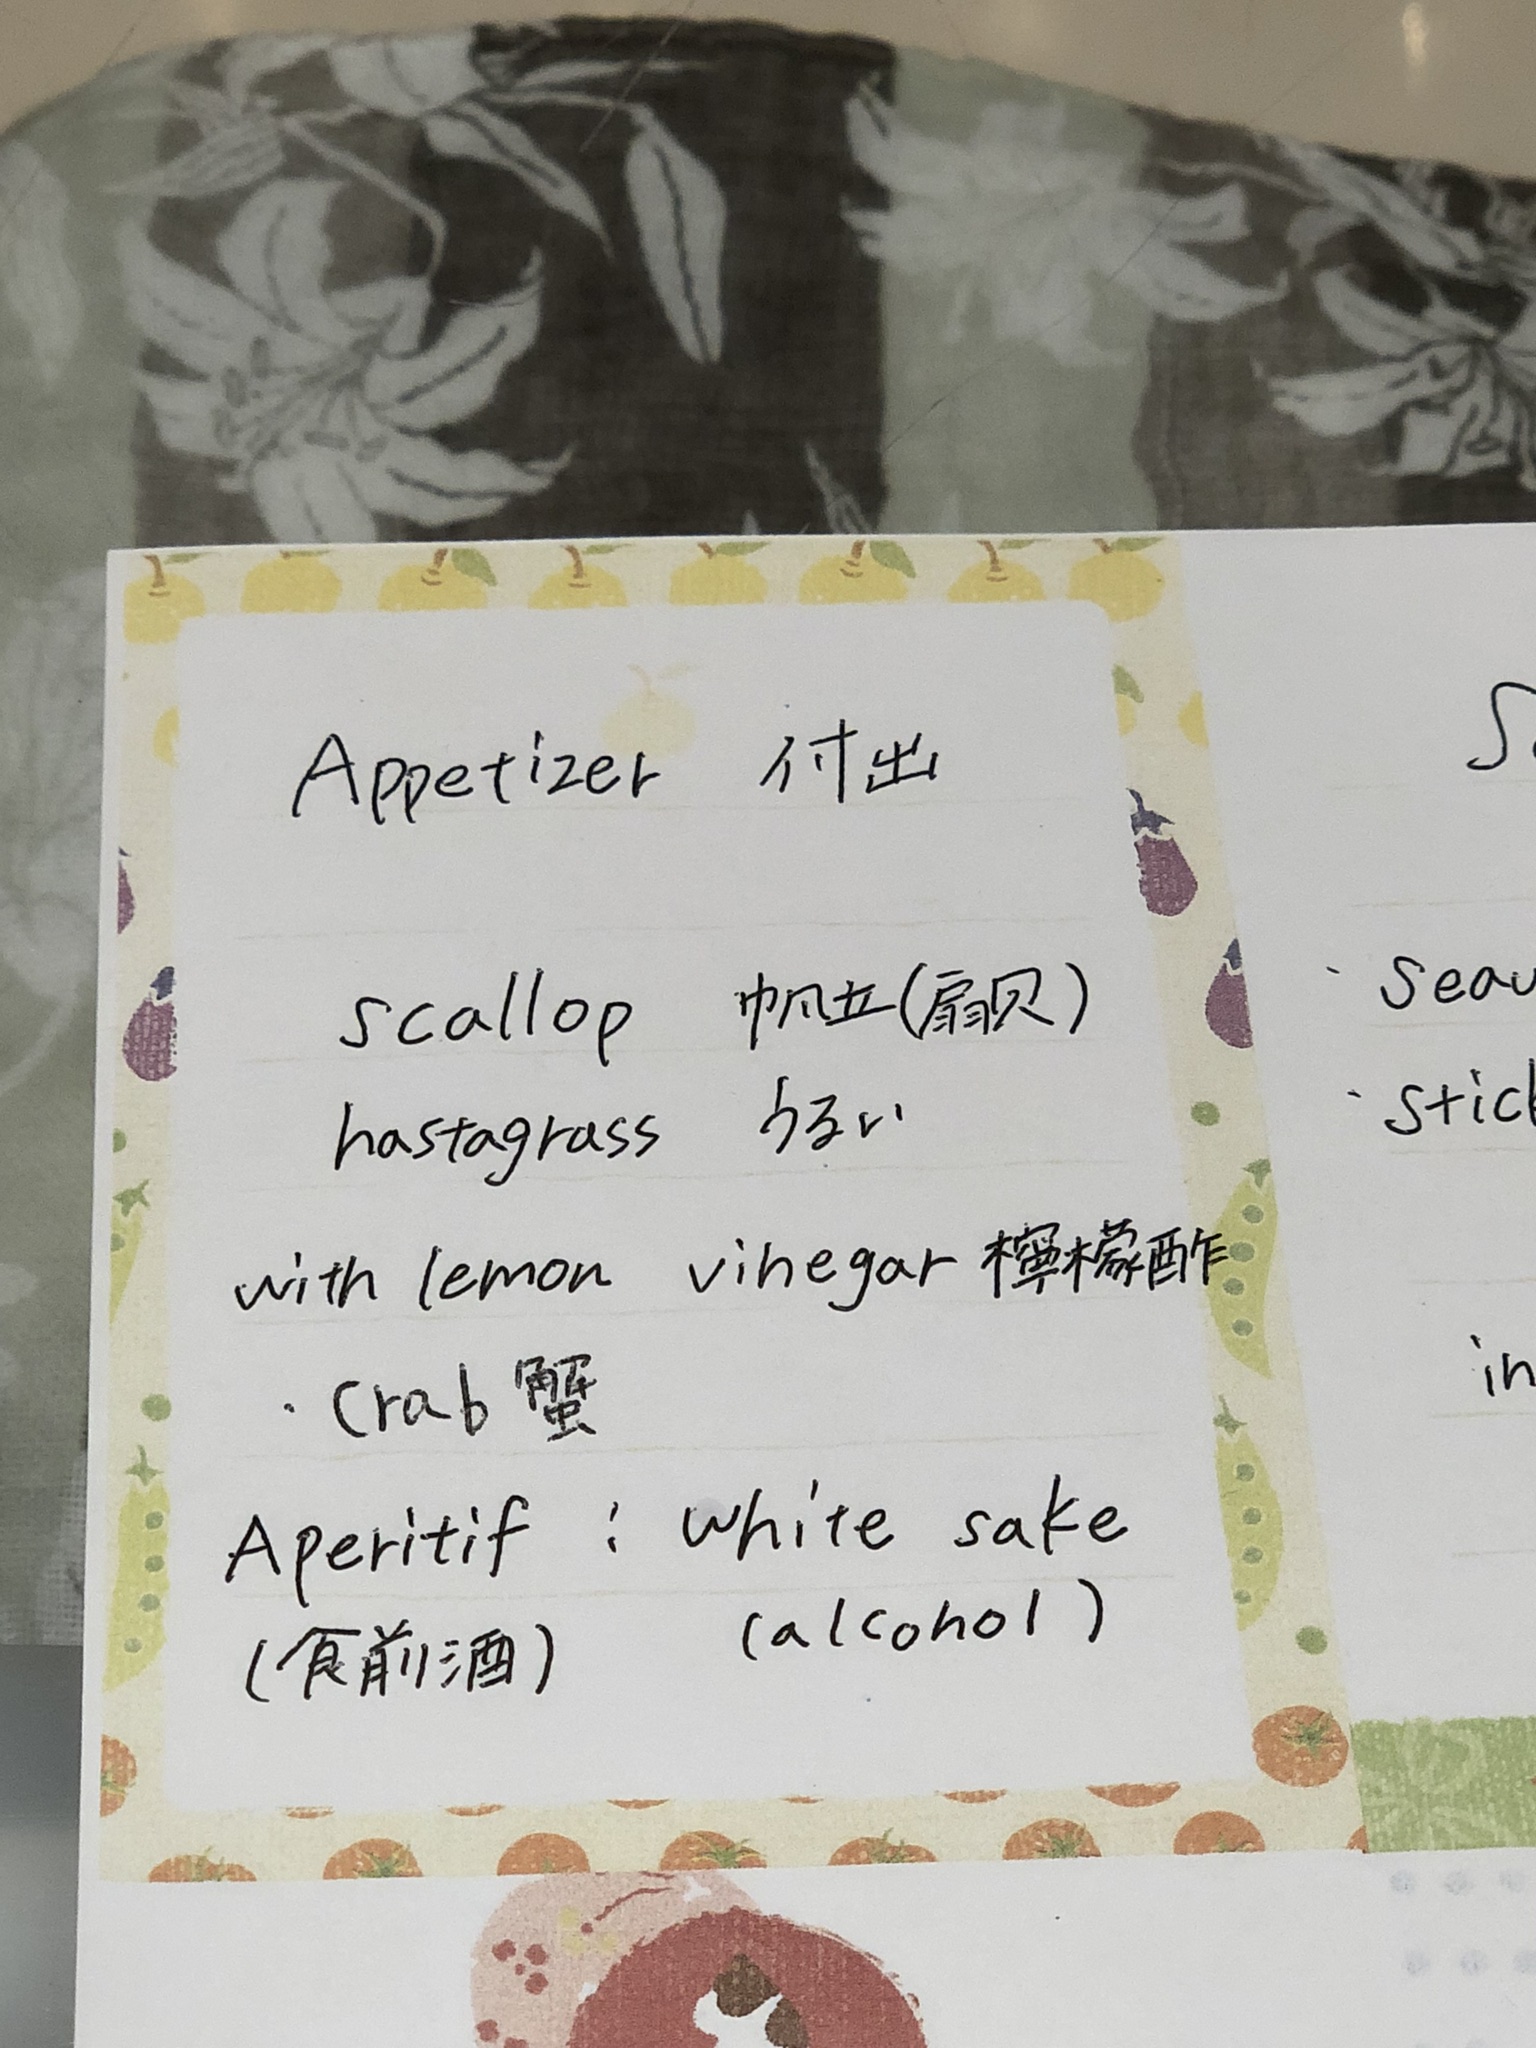 Appetizer 付出
scallop 帆立(扇贝)
hastagrass うるい
with lemon vinegar 檸檬酢
・crab 蟹
Aperitif : white sake
(食前酒) (alcohol)
・seau
・stick
in